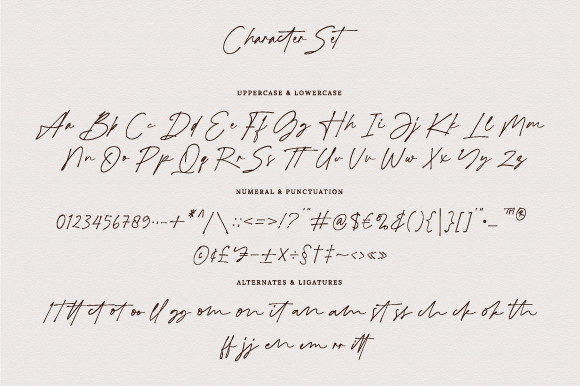 Character Set
UPPERCASE & LOWERCASE
Aa Bb Cc Dd Ee Ff Gg Hh Ii Jj Kk Ll Mm
Nn Oo Pp Qq Rr Ss Tt Uu Vv Ww Xx Yy Zz
NUMERAL & PUNCTUATION
0123456789..-+*^/\:;<=>!?'"#@$€%&(){|}[]'"•_™®
©¢£¥–±×÷§†‡~‹›«»
ALTERNATES & LIGATURES
tt ct ot oo ll gg om on it an am st ss ch ck ok th
ff jj en em rr